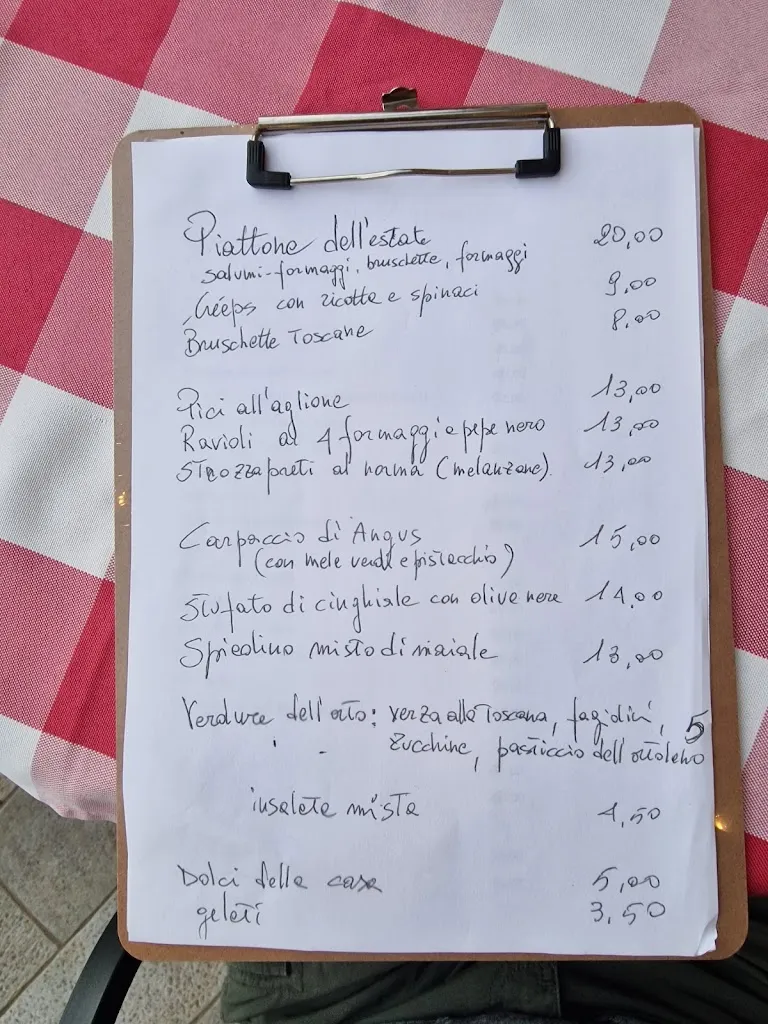 Piattone dell'estate 20,00
salumi-formaggi, bruschette, formaggi
Créeps con ricotta e spinaci 9,00
Bruschette Toscane 8,00
Pici all'aglione 13,00
Ravioli ai 4 formaggi e pepe nero 13,00
Strozzapreti al norma (melanzane) 13,00
Carpaccio di Angus 15,00
(con mele verdi e pistacchio)
Stufato di cinghiale con olive nere 14,00
Spiedino misto di maiale 13,00
Verdure dell'orto: verza alla Toscana, fagiolini, 5
zucchine, pasticcio dell'ortolano
insalata mista 4,50
Dolci della casa 5,00
gelati 3,50